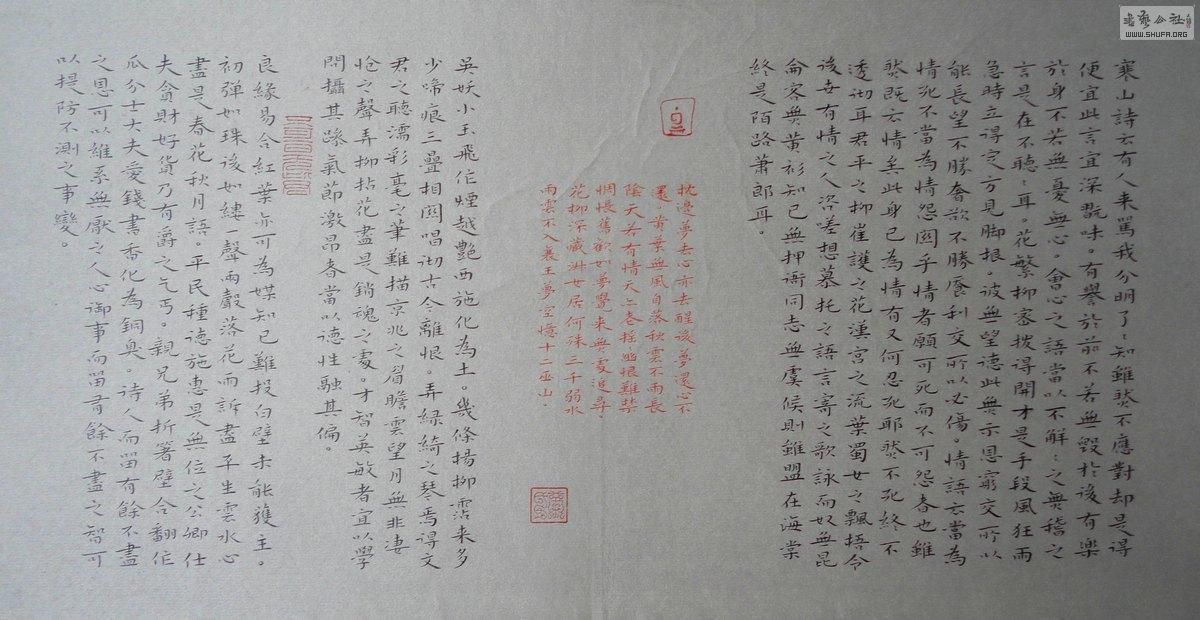 寒山詩云有人来罵我分明了〻知雖然不應對却是得
便宜此言宜深翫味。有譽於前不若無毀於後有樂
於身不若無憂無心。會心之語當以不解〻之無稽之
言是在不聽〻耳。花繁柳密撥得開才是手段風狂雨
急時立得定方見脚根。彼無望德此無示恩窮交所以
能長望不勝奢欲不勝饜利交所以必傷。情語云當為
情死不當為情怨關乎情者願可死而不可怨者也雖
然既云情矣此身已為情有又何忍死耶然不死終不
透切耳君平之柳崔護之花漢宮之流葉蜀女之飄梧令
後世有情之人咨嗟想慕托之語言寄之歌詠而奴無昆
侖客無黃衫知己無押衙同志無虞候則雖盟在海棠
終是陌路蕭郎耳。
枕邊夢去心亦去醒後夢還心不
還。黃葉無風自落秋雲不雨長
陰天若有情天亦老搖幽恨難禁
惆悵舊歡如夢覺来無處追尋
花柳深藏淑女居何殊三千弱水
雨雲不入襄王夢空憶十二巫山。
吳妖小玉飛作煙越艷西施化為土。幾條楊柳霑来多
少啼痕三疊相關唱切古今離恨。弄緑綺之琴焉得文
君之聽濡彩毫之筆難描京兆之眉瞻雲望月無非凄
愴之聲弄柳拈花盡是銷魂之處。才智英敏者宜以學
問攝其躁氣節激昂者當以德性融其偏。
良緣易合紅葉亦可為媒知己難投白璧未能獲主。
初彈如珠後如縷一聲兩聲落花雨訴盡平生雲水心
盡是春花秋月語。平民種德施惠是無位之公卿仕
夫貪財好貨乃有爵之乞丐。親兄弟折箸璧合翻作
瓜分士大夫愛錢書香化為銅臭。詩人而留有餘不盡
之恩可以維系無厭之人心御事而留有餘不盡之智可
以提防不測之事變。
WWW.SHUFA.ORG